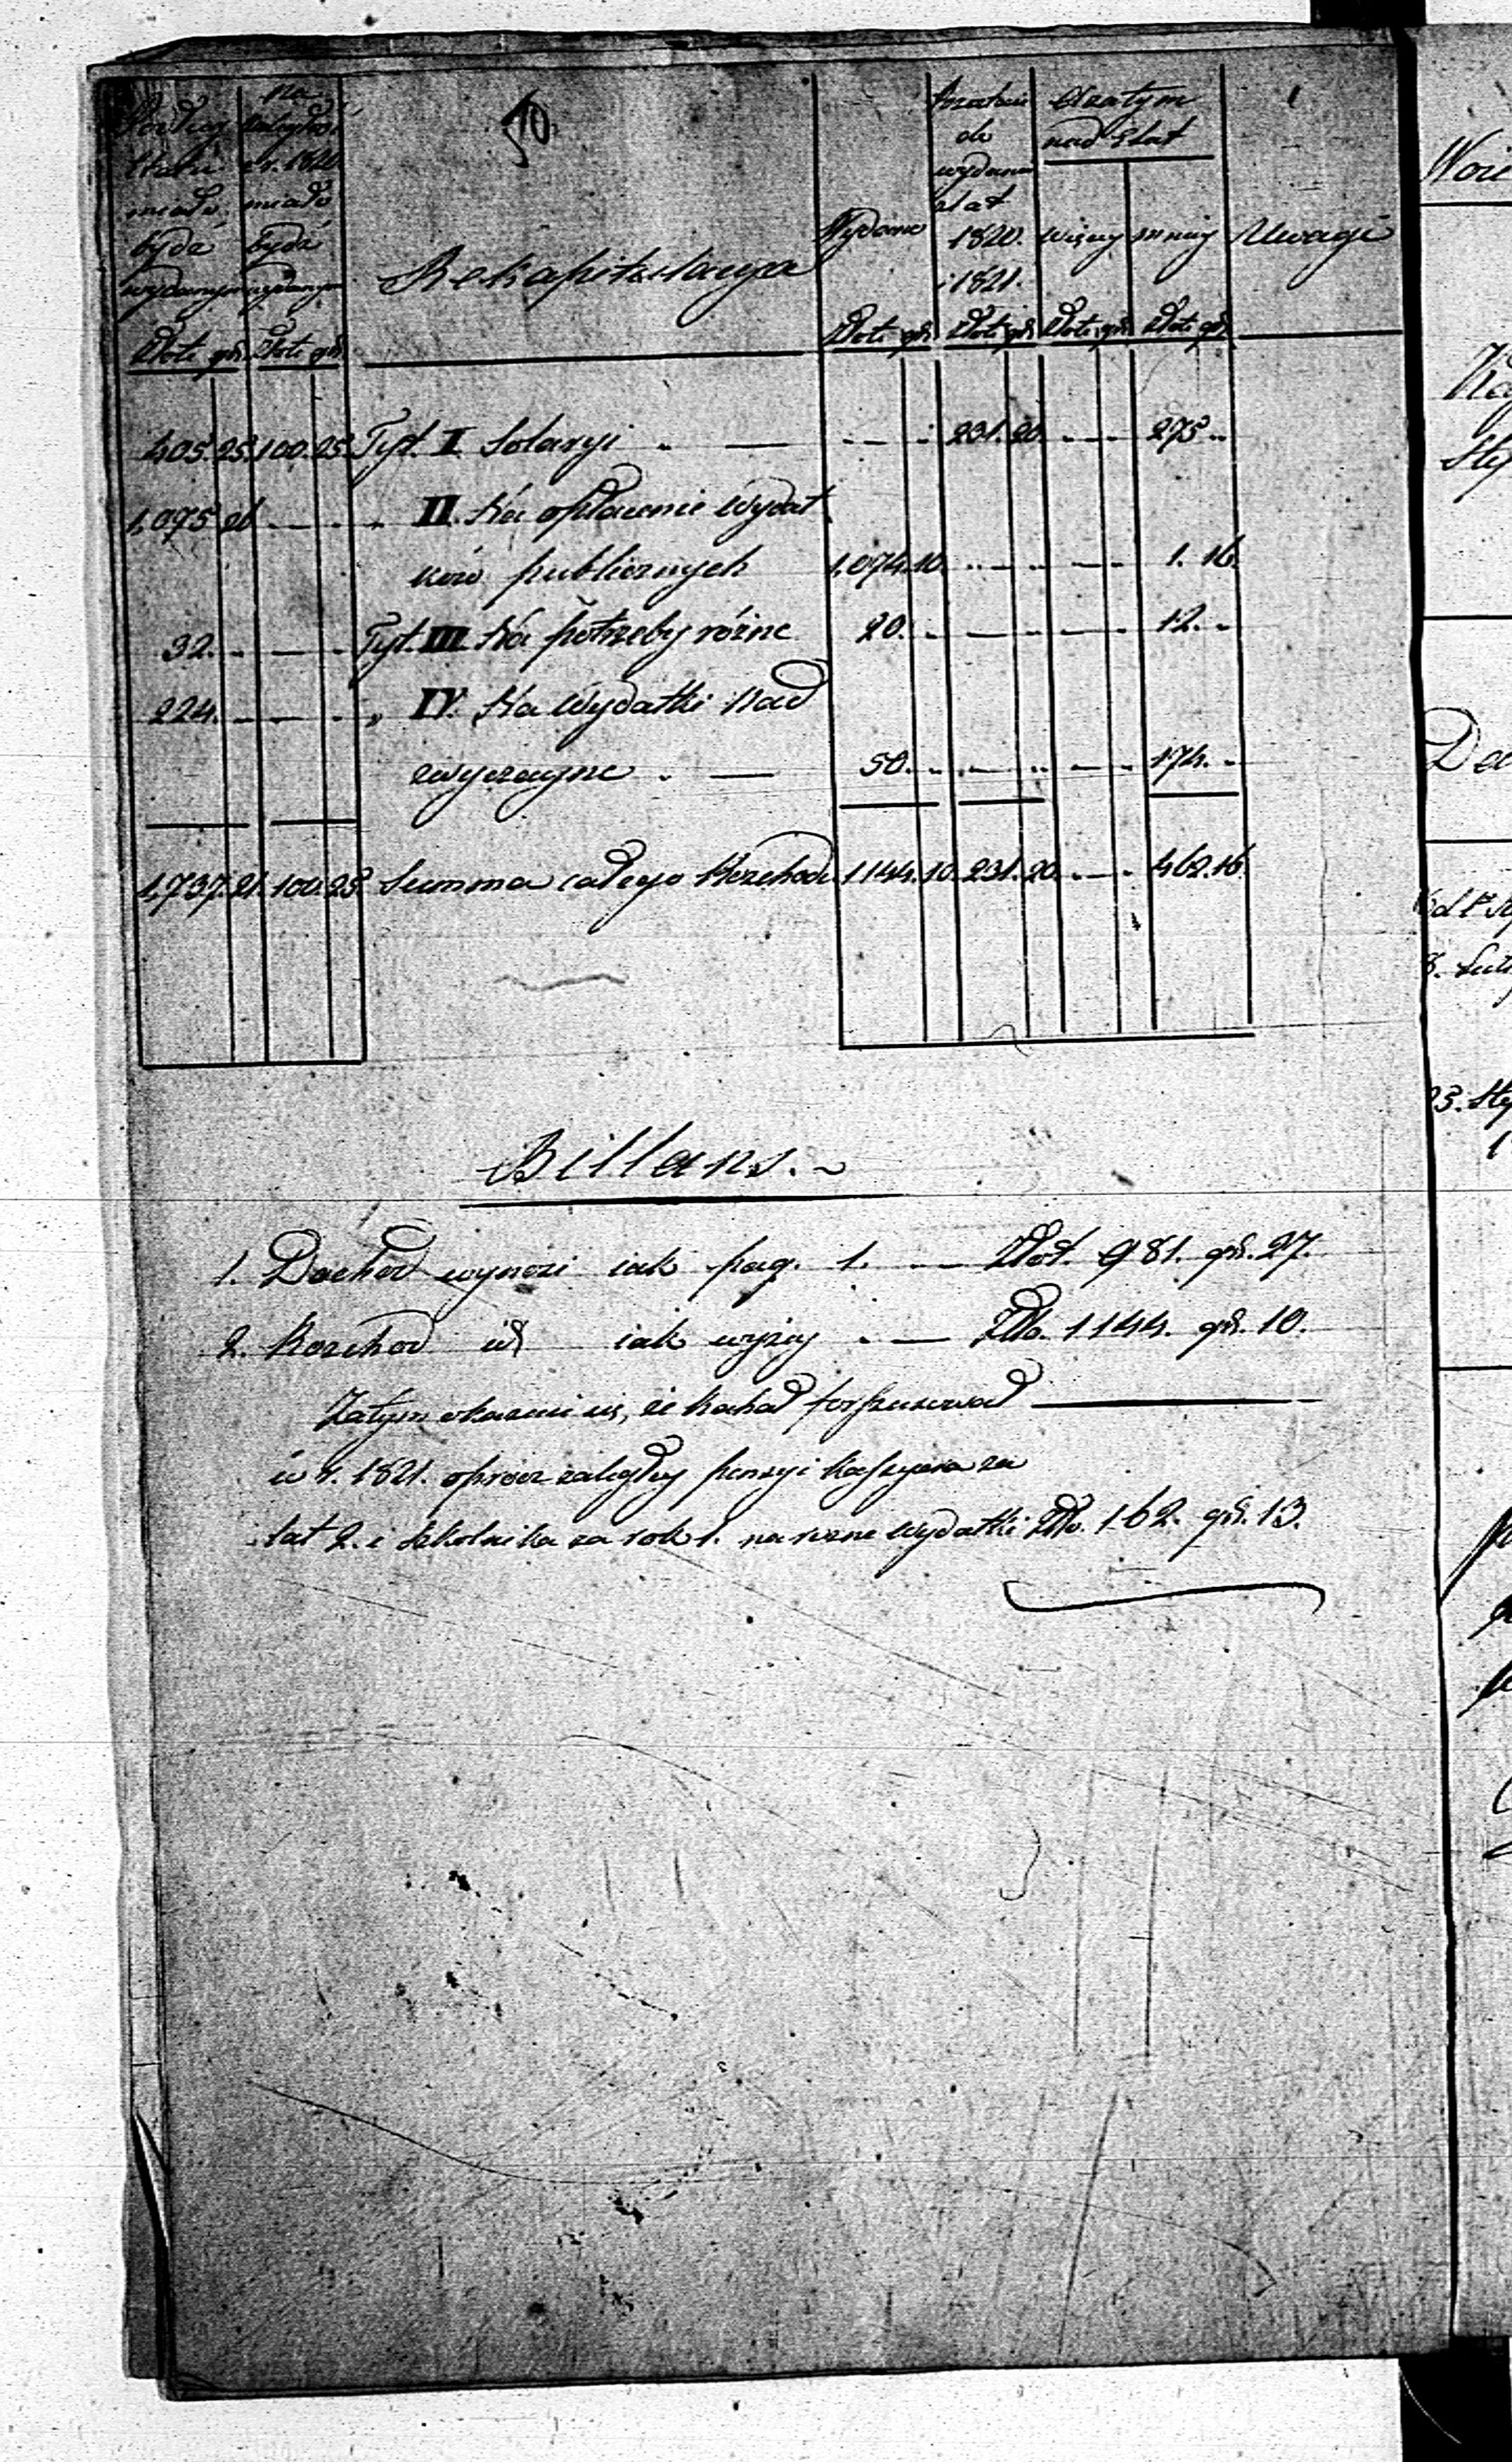 50.
Podług Etatu miało bydź wydanym | na zaległość z r. 1820 miało bydź wydanym | Rekapitulacya | Wydano | Pozostaie do wydania z lat 1820. i 1821. | A zatym nad Etat więcey | mniey | Uwagi
Złote gr. | Złote gr. | Złote gr. | Złote gr. | Złote gr. | Złote gr.
405. 25. | 100. 25. | Tyt. I Solaryi | 231. 20. | 275
1,075 26 | " II. Na opłacenie Wydat
ków publicznych | 1,074. 10. | 1. 16.
32. | Tyt. III Na potrzeby różne | 20. | 12.
224. | " IV. Na Wydatki Nad
zwyczayne | 50. | 174.
1,737. 21. | 100. 25. | Summa całego Rozchodu | 1144. 10. | 231. 20. | 462. 16.
Billans.
1. Dochod wynosi iak pag. 1. — Złot. 981. gr. 27.
2. Rozchod iak wyżey — Złt. 1144. gr. 10.
Zatym okazuie się, że Kahał forszusował
w r. 1821. oprócz zaległey pensyi Kassyera za
lat 2. i Szkolnika za rok 1. na rozne wydatki Złt. 162. gr. 13.